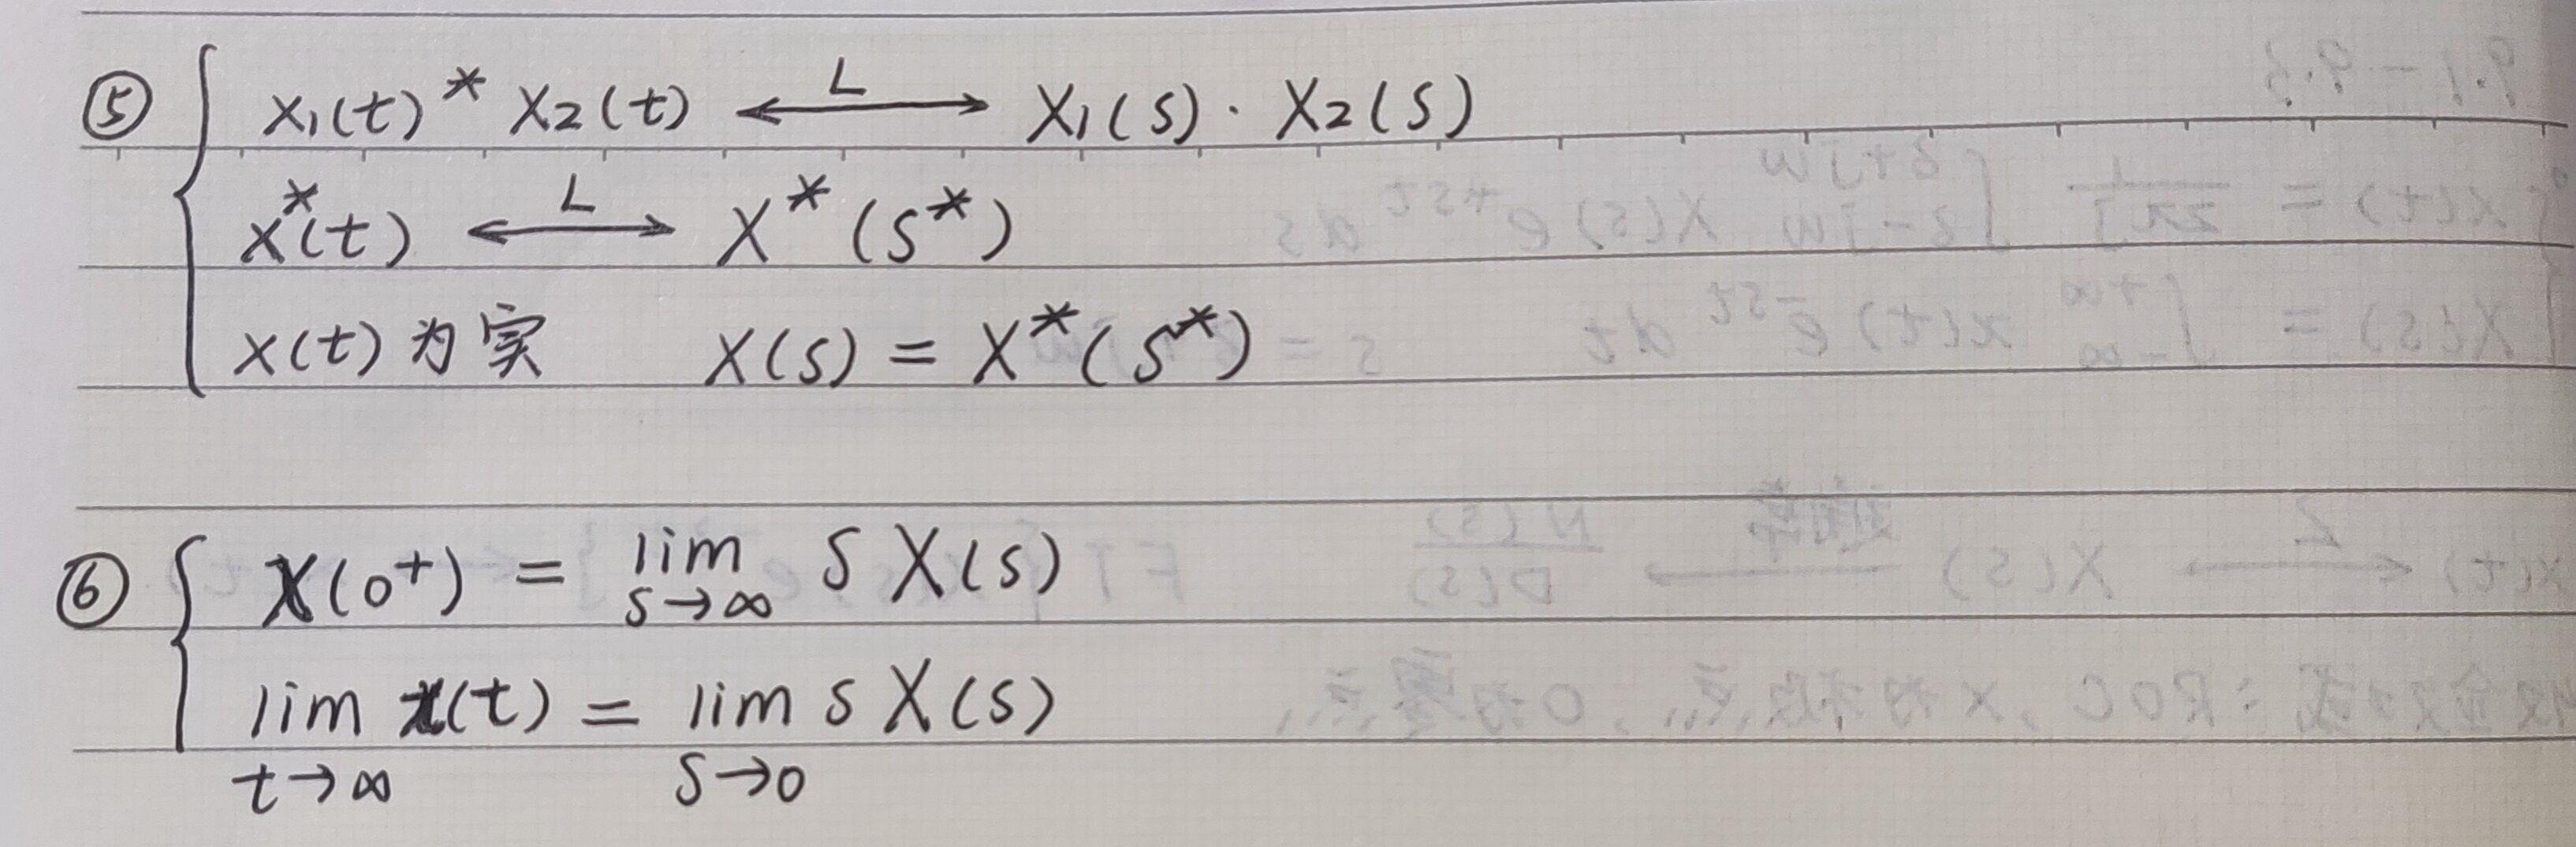 ⑤ x₁(t) * x₂(t) ⟷ᴸ X₁(s) · X₂(s)
x*(t) ⟷ᴸ X*(s*)
x(t) 为实 X(s) = X*(s*)
⑥ x(0⁺) = lim_{s→∞} s X(s)
lim_{t→∞} x(t) = lim_{s→0} s X(s)